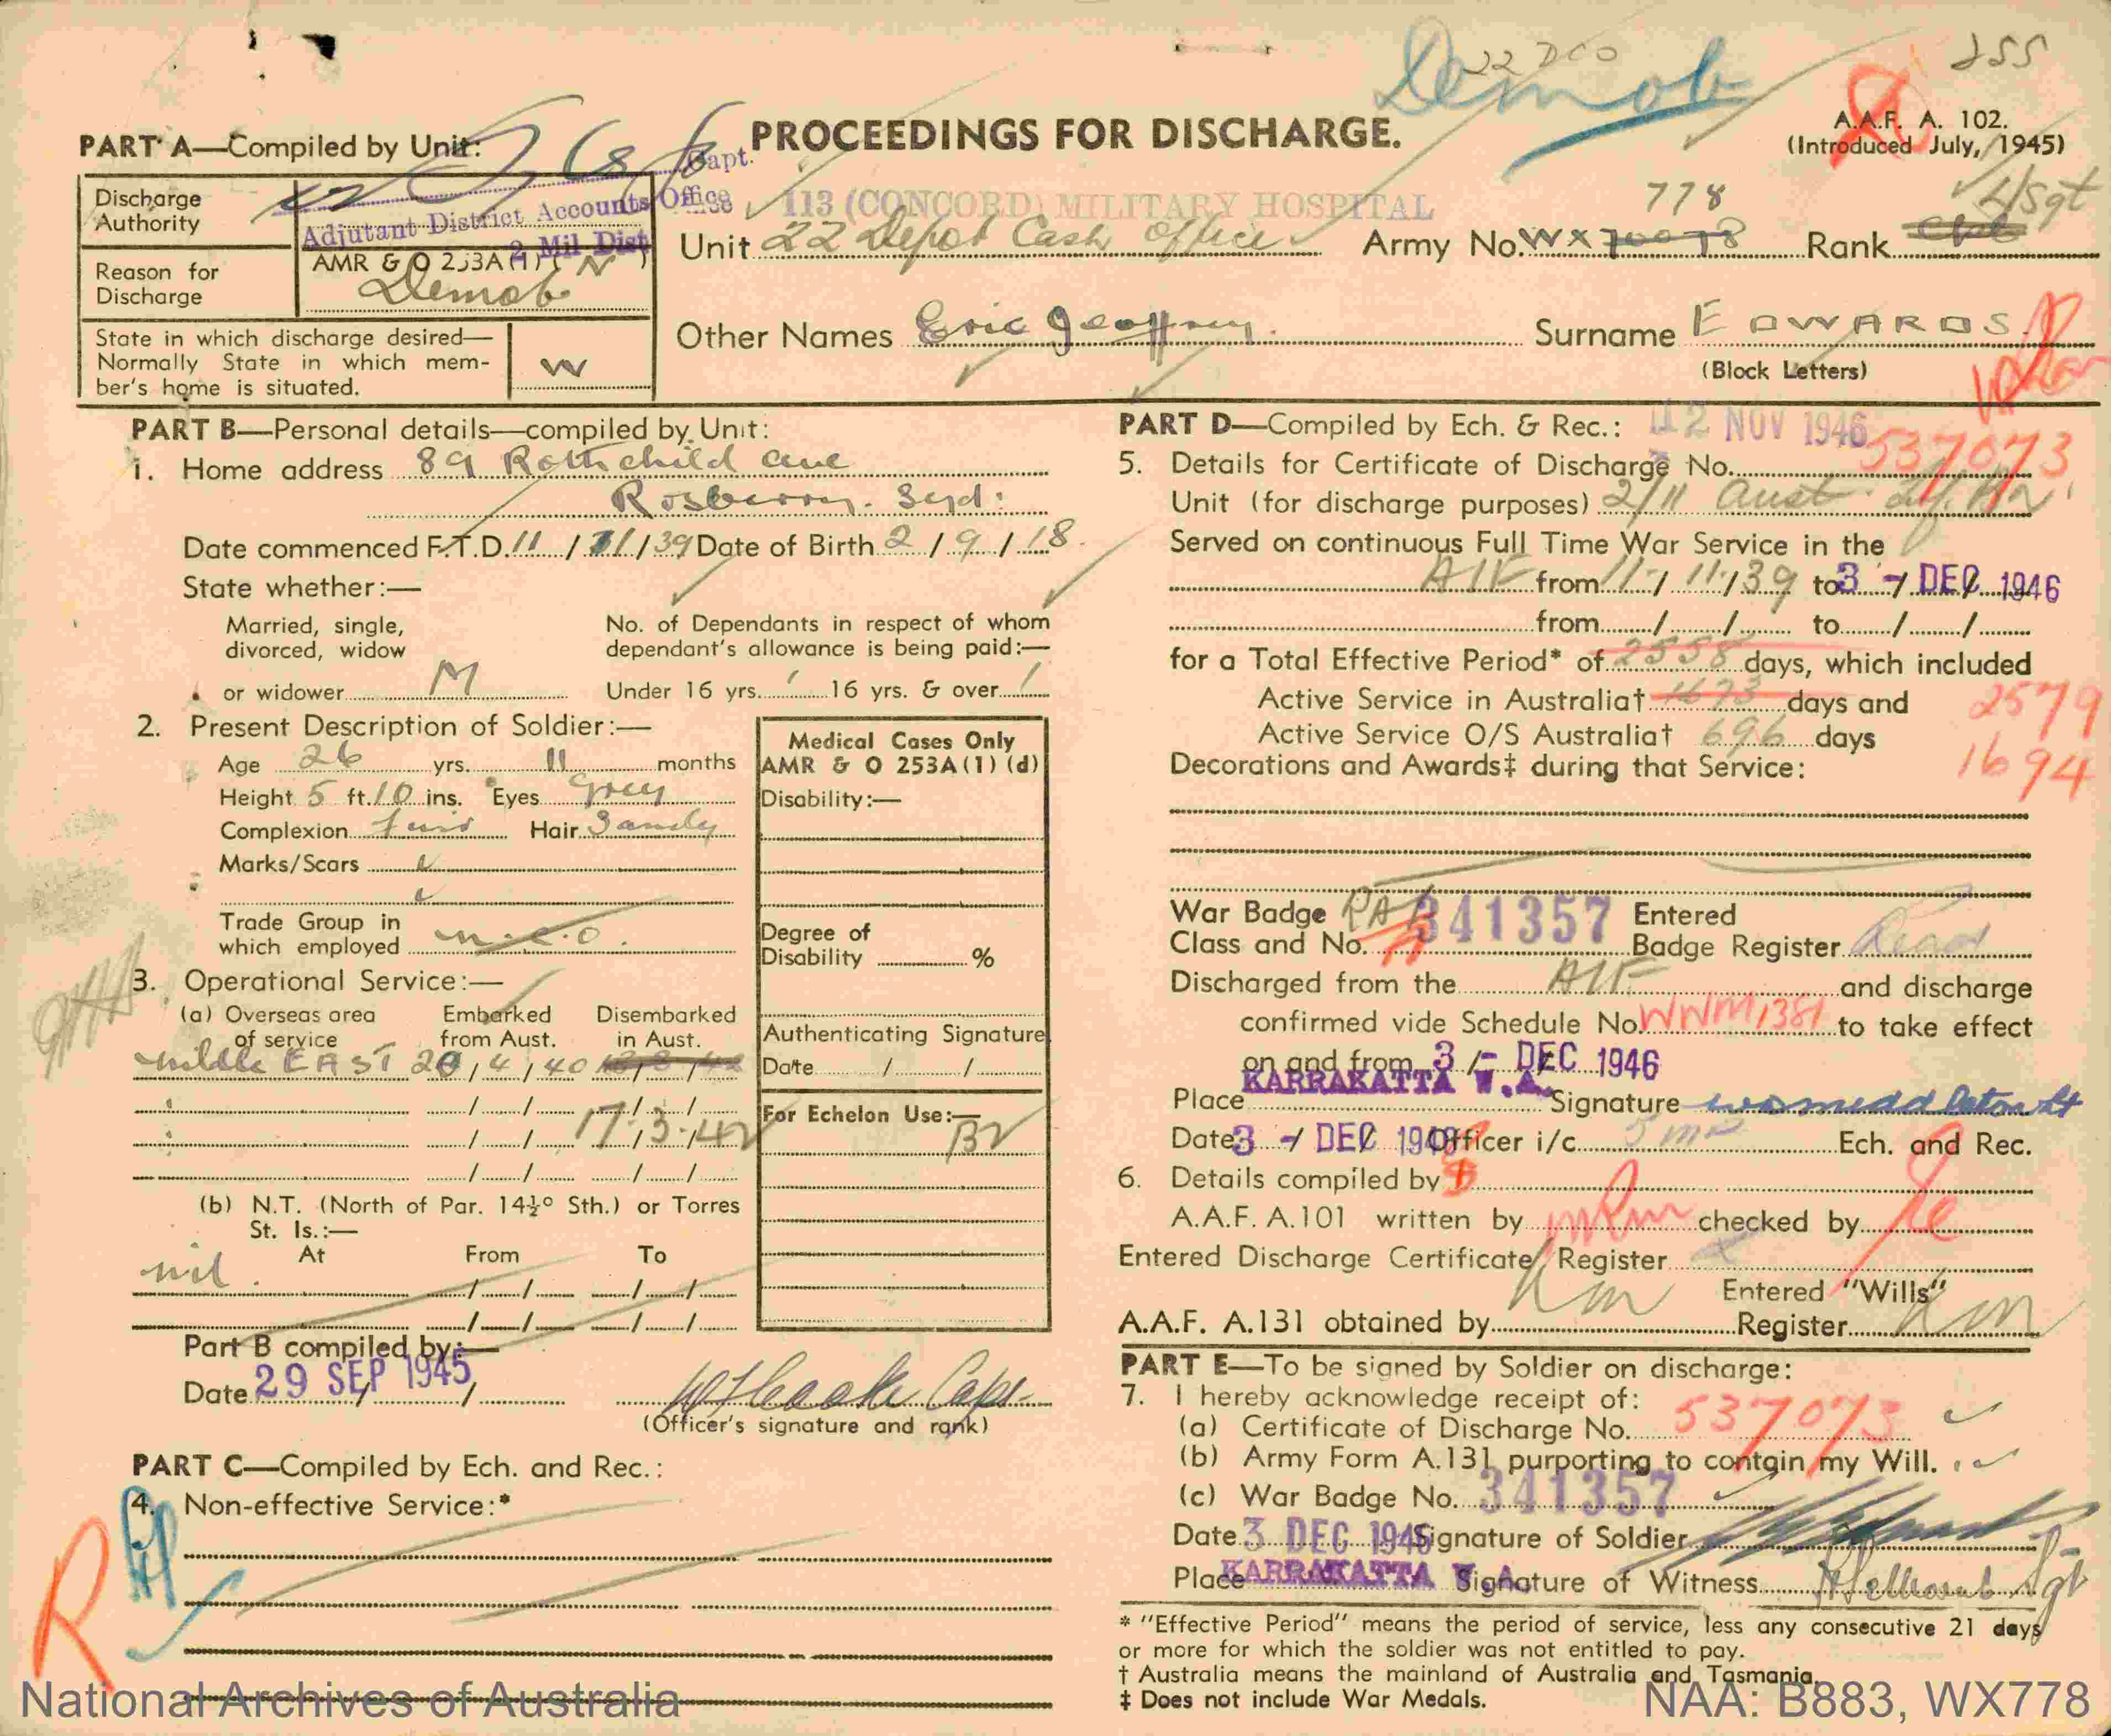 22 DCO
Demob
255
PROCEEDINGS FOR DISCHARGE.
A.A.F. A. 102.
(Introduced July, 1945)
PART A—Compiled by Unit:
Capt.
Adjutant District Accounts Office
2 Mil Dist
Discharge
Authority
AMR & O 253A(1)( )
Reason for
Discharge
Demob
State in which discharge desired—
Normally State in which mem-
ber's home is situated.
W
113 (CONCORD) MILITARY HOSPITAL
Unit 22 Depot Cash Office
778
Army No. WX
L/Sgt
Rank
Other Names Eric Geoffrey.
Surname EDWARDS
(Block Letters)
PART B—Personal details—compiled by Unit:
1. Home address 89 Rothchild Ave
Rosberry. Syd:
Date commenced F.T.D. 11/11/39 Date of Birth 2/9/18
State whether:—
Married, single,
divorced, widow
or widower M
No. of Dependants in respect of whom
dependant's allowance is being paid:—
Under 16 yrs. 1 16 yrs. & over 1
2. Present Description of Soldier:—
Age 26 yrs. 11 months
Height 5 ft. 10 ins. Eyes Grey
Complexion Fair Hair Sandy
Marks/Scars
Trade Group in
which employed n.c.o.
Medical Cases Only
AMR & O 253A(1)(d)
Disability:—
Degree of
Disability %
Authenticating Signature
Date / /
For Echelon Use:—
3. Operational Service:—
(a) Overseas area
of service
Embarked
from Aust.
Disembarked
in Aust.
Middle EAST 20/4/40
17.3.42
(b) N.T. (North of Par. 14½° Sth.) or Torres
St. Is.:—
At From To
nil.
Part B compiled by:—
Date 29 SEP 1945
Capt
(Officer's signature and rank)
PART C—Compiled by Ech. and Rec.:
4. Non-effective Service:*
R
PART D—Compiled by Ech. & Rec.: 12 NOV 1946
5. Details for Certificate of Discharge No. 537073
Unit (for discharge purposes) 2/11 Aust. Inf. Bn.
Served on continuous Full Time War Service in the
AIF from 11/11/39 to 3 - DEC 1946
from / / to / /
for a Total Effective Period* of 2558 days, which included
2579
Active Service in Australia† 1673 days and
1694
Active Service O/S Australia† 696 days
Decorations and Awards‡ during that Service:
War Badge
Class and No. 341357
Entered
Badge Register
Discharged from the AIF and discharge
confirmed vide Schedule No. WWM1381 to take effect
on and from 3 - DEC 1946
Place KARRAKATTA W.A. Signature
Date 3 - DEC 1946 Officer i/c Ech. and Rec.
6. Details compiled by
A.A.F. A.101 written by checked by
Entered Discharge Certificate Register
Entered "Wills"
A.A.F. A.131 obtained by Register
PART E—To be signed by Soldier on discharge:
7. I hereby acknowledge receipt of:
(a) Certificate of Discharge No. 537073
(b) Army Form A.131 purporting to contain my Will.
(c) War Badge No. 341357
Date 3 DEC 1946 Signature of Soldier
Place KARRAKATTA W.A. Signature of Witness Sgt
* "Effective Period" means the period of service, less any consecutive 21 days
or more for which the soldier was not entitled to pay.
† Australia means the mainland of Australia and Tasmania.
‡ Does not include War Medals.
National Archives of Australia
NAA: B883, WX778